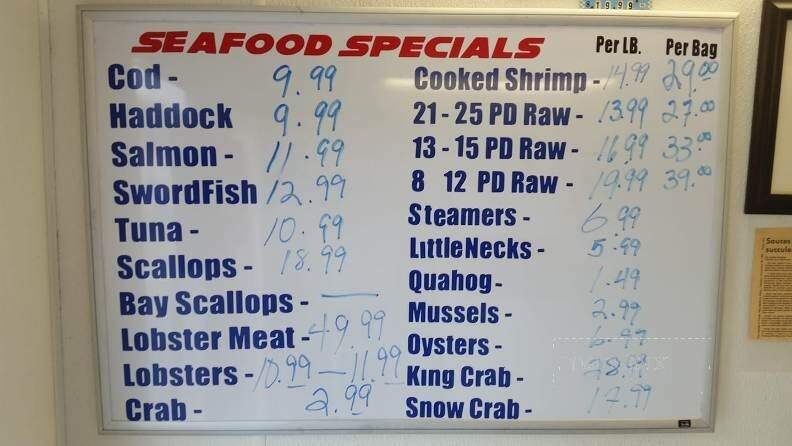 SEAFOOD SPECIALS
Per LB. Per Bag
Cod - 9.99
Haddock 9.99
Salmon - 11.99
SwordFish 12.99
Tuna - 10.99
Scallops - 18.99
Bay Scallops - ——
Lobster Meat - 49.99
Lobsters - 10.99 — 11.99
Crab - 2.99
Cooked Shrimp - 14.99 29.00
21 - 25 PD Raw - 13.99 27.00
13 - 15 PD Raw - 16.99 33.00
8 12 PD Raw - 19.99 39.00
Steamers - 6.99
LittleNecks - 5.99
Quahog - 1.49
Mussels - 2.99
Oysters - 6.99
King Crab -
Snow Crab - 17.99
19.99